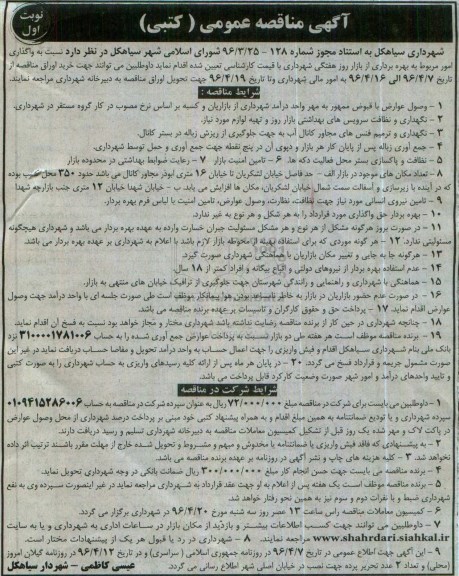 نوبت اول
آگهی مناقصه عمومی ( کتبی )
شهرداری سیاهکل به استناد مجوز شماره ۱۲۸ – ۹۶/۳/۲۵ شورای اسلامی شهر سیاهکل در نظر دارد نسبت به واگذاری
امور مربوط به بهره برداری از بازار روز هفتگی شهرداری با قیمت کارشناسی تعیین شده اقدام نماید داوطلبین می توانند جهت خرید اوراق مناقصه از
تاریخ ۹۶/۴/۷ الی ۹۶/۴/۱۶ به امور مالی شهرداری وتا تاریخ ۹۶/۴/۱۹ جهت تحویل اوراق مناقصه به دبیرخانه شهرداری مراجعه نمایند.
شرایط مناقصه :
۱ – وصول عوارض با قبوض ممهور به مهر واحد درآمد شهرداری از بازاریان و کسبه بر اساس نرخ مصوب در کار گروه مستقر در شهرداری.
۲ – نگهداری و نظافت سرویس های بهداشتی بازار روز و تهیه لوازم مورد نیاز.
۳ – نگهداری و ترمیم فنس های مجاور کانال آب به جهت جلوگیری از ریزش زباله در بستر کانال.
۴ – جمع آوری زباله پس از پایان کار هر بازار و دپوی آن در پنج نقطه جهت جمع آوری و حمل توسط شهرداری.
۵ – نظافت و پاکسازی بستر محل فعالیت دکه ها. ۶ – تامین امنیت بازار ۷ – رعایت ضوابط بهداشتی در محدوده بازار
۸ – تعداد مکان های موجود در بازار الف – حد فاصل خیابان لشکریان تا خیابان ۱۶ متری ابوذر مجاور کانال می باشد حدود ۳۵۰ محل غرب بوده
که در آینده با زیرسازی و آسفالت سمت شمال خیابان لشکریان، مکان ها افزایش می یابد. ب – خیابان شهدا خیابان ۱۲ متری جنب بازارچه شهدا
۹ – تامین نیروی انسانی مورد نیاز جهت نظافت، نظارت، وصول عوارض، تامین امنیت با لباس فرم بهره بردار.
۱۰ – بهره بردار حق واگذاری مورد قرارداد را به هر شکل و هر نوع به غیر ندارد.
۱۱ – در صورت بروز هرگونه مشکل از هر نوع و هر مشکل مسئولیت جبران خسارت وارده به عهده بهره بردار می باشد و شهرداری هیچگونه
مسئولیتی ندارد. ۱۲ – هر گونه موردی که برای استفاده بهینه از محوطه بازار لازم باشد با اعلام به شهرداری بر عهده بهره بردار می باشد.
۱۳ – هر گونه جا به جایی و تغییر مکان بازاریان با هماهنگی شهرداری صورت گیرد.
۱۴ – عدم استفاده بهره بردار از نیروهای دولتی و اتباع بیگانه و افراد کمتر از ۱۸ سال.
۱۵ – هماهنگی با شهرداری و راهنمایی و رانندگی شهرستان جهت جلوگیری از ترافیک خیابان های منتهی به بازار.
۱۶ – در صورت عدم حضور بازاریان در بازار به خاطر نامساعد بودن هوا پیمانکار موظف است طی صورت جلسه ای با واحد درآمد جهت وصول
عوارض اقدام نماید. ۱۷ – پرداخت حق و حقوق کارگران و تاسیسات بر عهده برنده مناقصه می باشد.
۱۸ – چنانچه شهرداری در حین کار از برنده مناقصه رضایت نداشته باشد شهرداری مختار و مجاز خواهد بود نسبت به فسخ آن اقدام نماید.
۱۹ – برنده مناقصه موظف است هر هفته طی دو بازار نسبت به پرداخت عوارض جمع آوری شده را به حساب ۳۱۰۰۰۰۱۷۸۱۰۰۶ نزد
بانک ملی بنام شهرداری سیاهکل اقدام و فیش واریزی را جهت اعمال حساب به واحد درآمد تحویل و مفاصا حساب دریافت نماید در غیر این
صورت مشمول جریمه و قرارداد فسخ می گردد. ۲۰ – در پایان هر ماه پس از ارائه کلیه رسیدهای واریزی به حساب شهرداری را به صورت کتبی
و تایید واحدهای درآمد و امور شهر صورت وضعیت کارکرد قابل پرداخت می باشد.
شرایط شرکت در مناقصه
۱ – داوطلبین می بایست برای شرکت در مناقصه مبلغ ۷۲/۰۰۰/۰۰۰ ریال به عنوان سپرده شرکت در مناقصه به حساب ۰۱۰۹۴۱۵۲۸۶۰۰۶
سپرده شهرداری و یا تودیع ضمانتنامه به همین مبلغ اقدام و به همراه پیشنهاد کتبی خود مبنی بر پرداخت درصد شهرداری از محل وصول عوارض
در پاکت لاک و مهر شده یک روز قبل از تشکیل کمیسیون معاملات مناقصه به دبیرخانه شهرداری تسلیم و رسید دریافت دارند.
۲ – به پیشنهادی که فاقد فیش واریزی یا ضمانتنامه یا مخدوش و مبهم و مشروط و تحویل شده خارج از مهلت مقرر باشند ترتیب اثر داده
نخواهد شد. ۳ – کلیه هزینه های چاپ و نشر آگهی در روزنامه بر عهده برنده مناقصه می باشد.
۴ – برنده مناقصه می بایست جهت حسن انجام کار مبلغ ۳۰۰/۰۰۰/۰۰۰ ریال ضمانت بانکی در وجه شهرداری تحویل نماید.
۵ – برنده مناقصه موظف است یک هفته پس از اعلام به او جهت عقد قرارداد به شهرداری مراجعه نماید در غیر اینصورت سپرده وی به نفع
شهرداری ضبط و با نفرات دوم و سوم نیز به همین نحو رفتار خواهد شد.
۶ – کمیسیون معاملات مناقصه راس ساعت ۱۳ عصر روز سه شنبه مورخ ۹۶/۴/۲۰ در شهرداری برگزار می گردد.
۷ – داوطلبین می توانند جهت کسب اطلاعات بیشتر و بازدید از مکان بازار در ساعات اداری به شهرداری و یا به سایت
www.shahrdari.siahkal.ir مراجعه نمایند. ۸ – شهرداری در رد یا قبول هر یک از پیشنهادات مختار است.
۹ – این آگهی جهت اطلاع عمومی در تاریخ ۹۶/۴/۷ در روزنامه جمهوری اسلامی ( سراسری) و در تاریخ ۹۶/۴/۱۲ در روزنامه گیلان امروز
(محلی) و تعداد ۲ عدد تحریر پرده جهت نصب در خیابان اصلی شهر اطلاع رسانی می گردد. عیسی کاظمی – شهردار سیاهکل